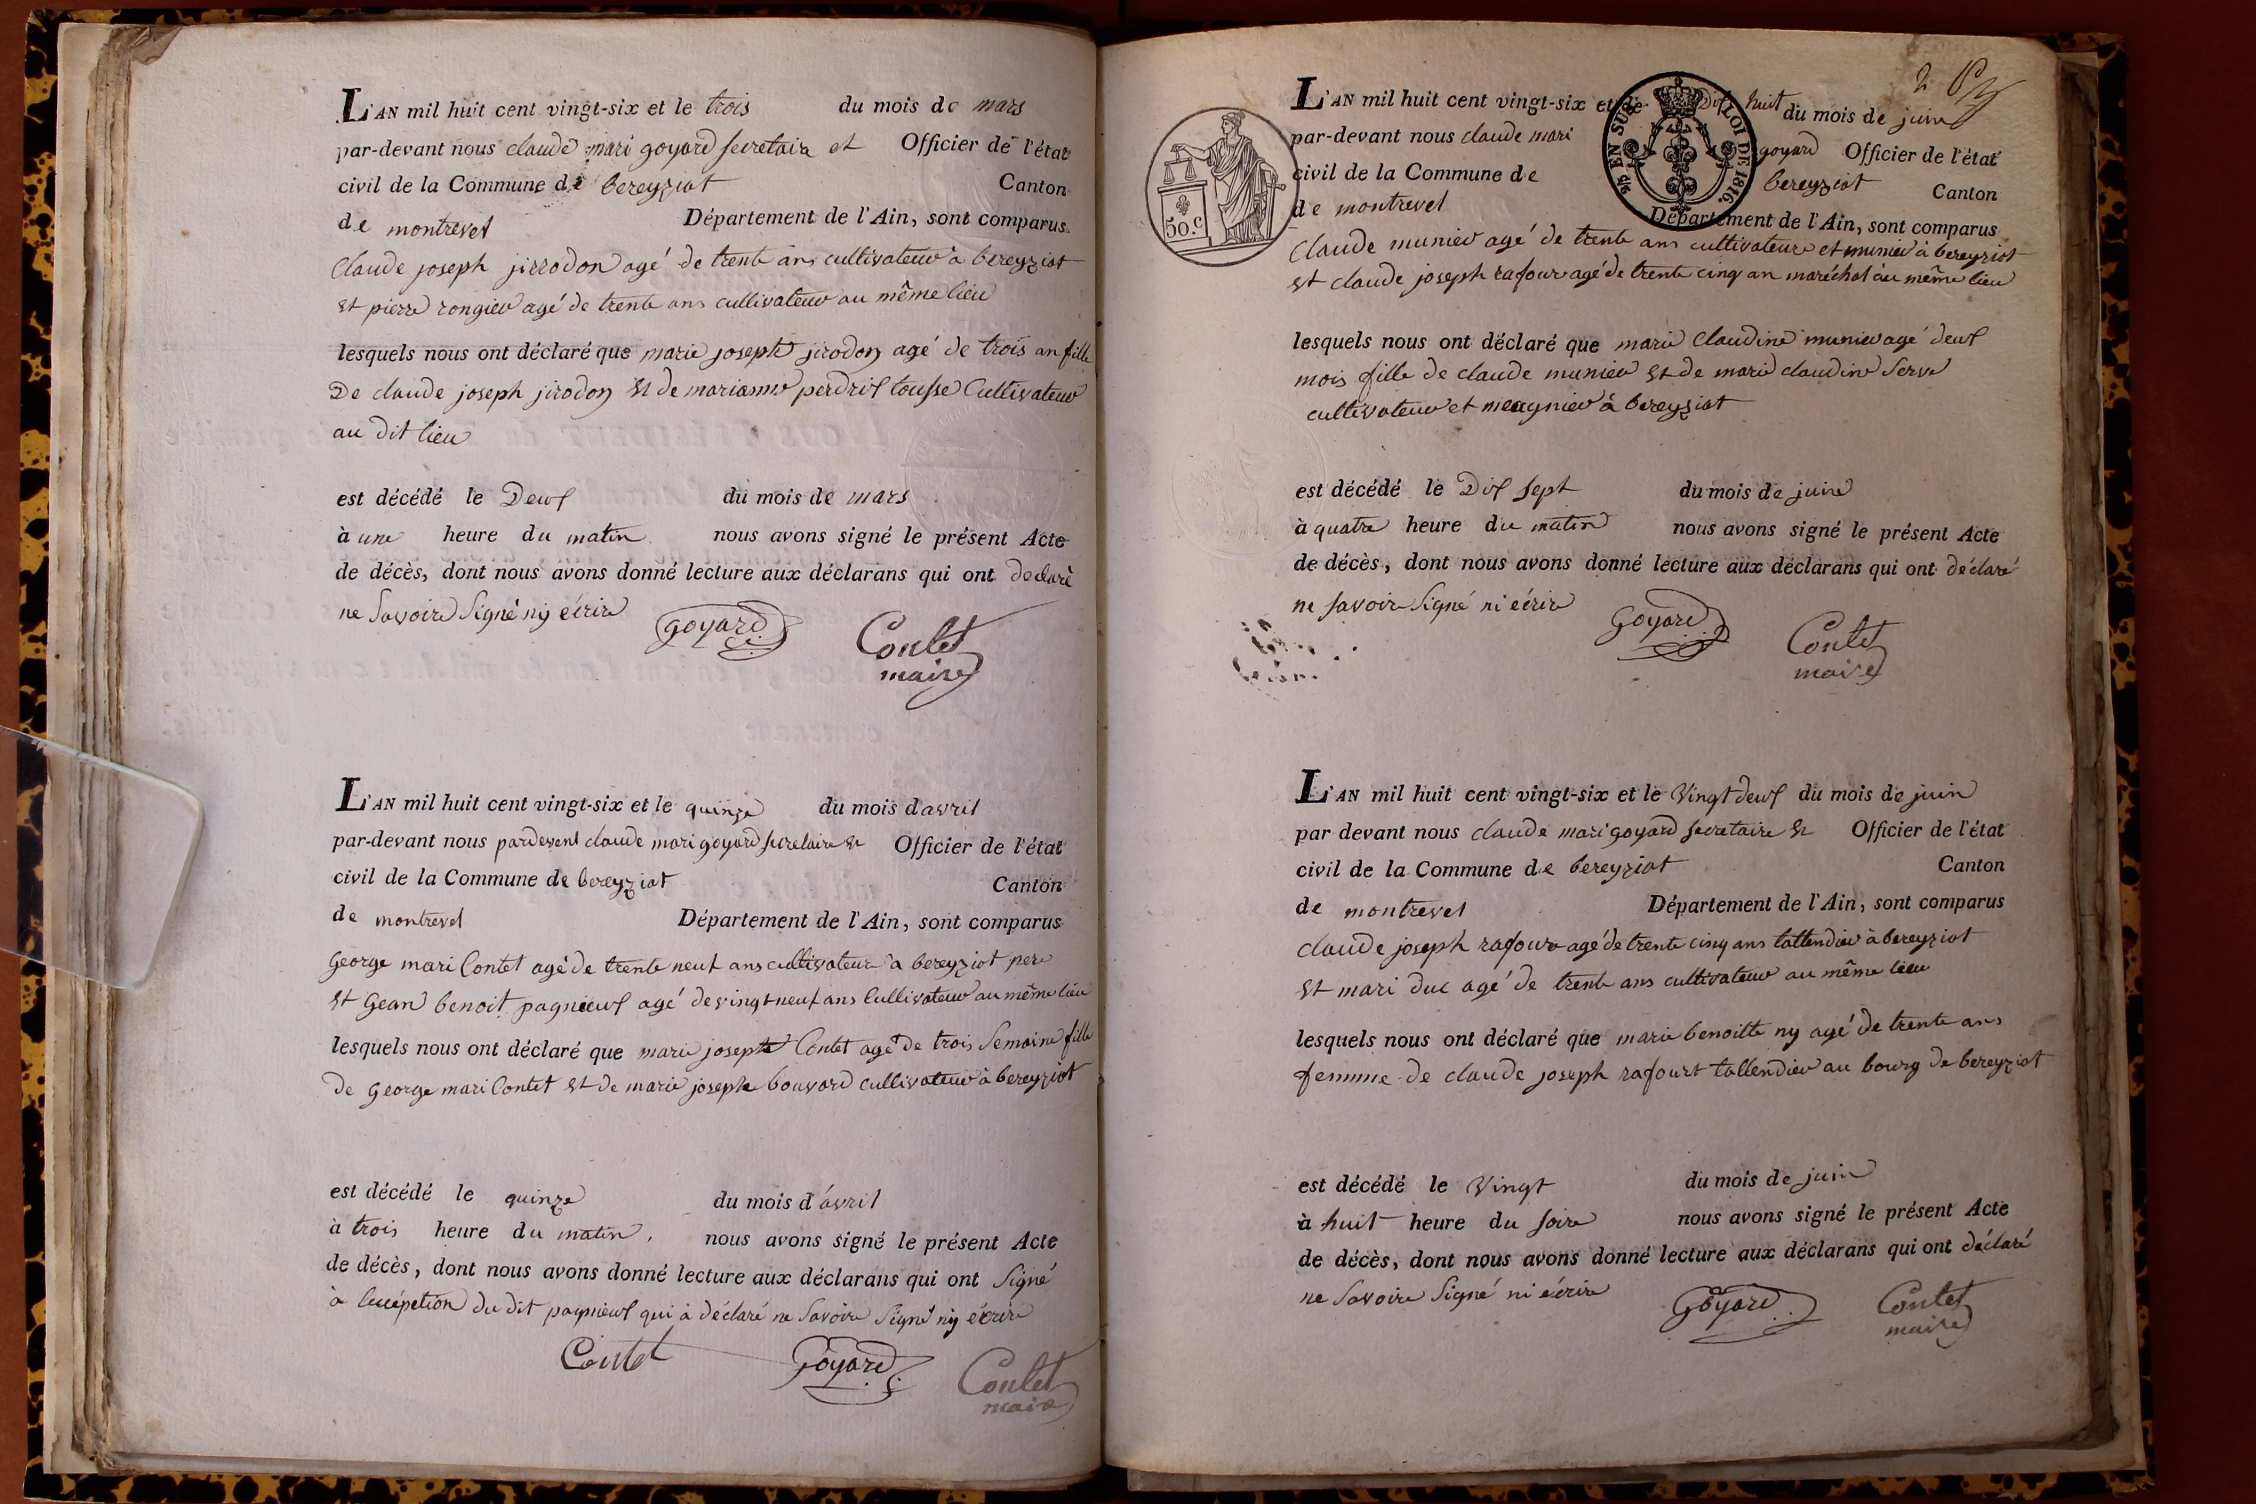 L'AN mil huit cent vingt-six et le trois du mois de mars
par-devant nous claude mari goyard secretaire et Officier de l'état
civil de la Commune de bereyziat Canton
de montrevel Département de l'Ain, sont comparus
Claude joseph jirrodon agé de trente ans cultivateur à bereyziat
et pierre rongier agé de trente ans cultivateur au même lieu
lesquels nous ont déclaré que marie joseph jirodon agé de trois an fille
De claude joseph jirodon et de marianne perdrix tousse Cultivateur
au dit lieu
est décédé le Deux du mois de mars
à une heure du matin nous avons signé le présent Acte
de décès, dont nous avons donné lecture aux déclarans qui ont declaré
ne Savoire Signé ny écrire
goyard Contet
maire
L'AN mil huit cent vingt-six et le quinze du mois d'avril
par-devant nous pardevent claude mari goyard secretaire et Officier de l'état
civil de la Commune de bereyziat Canton
de montrevel Département de l'Ain, sont comparus
George mari Contet agé de trente neuf ans cultivateur à bereyziat pere
et Gean benoit pagnieux agé de vingt neuf ans Cultivateur au même lieu
lesquels nous ont déclaré que marie josephe Contet agé de trois Semaine fille
de George mari Contet et de marie josephe bouvard cultivateur à bereyziat
est décédé le quinze du mois d'avril
à trois heure du matin, nous avons signé le présent Acte
de décès, dont nous avons donné lecture aux déclarans qui ont Signé
à lexcépetion du dit pagnieux qui à déclaré ne Savoire Signé ny écrire
Contet Goyard Contet
maire
2
L'AN mil huit cent vingt-six et le Dix huit du mois de juin
par-devant nous claude mari goyard Officier de l'état
civil de la Commune de bereyziat Canton
de montrevel Département de l'Ain, sont comparus
EN SUS LOI DE 1816.
50.c
Claude munier agé de trente ans cultivateur et munier à bereyziat
et claude joseph rafour agé de trente cinq an maréchal au même lieu
lesquels nous ont déclaré que marie Claudine munier agé deux
mois fille de claude munier et de marie claudine Serve
cultivateur et meugnier à bereyziat
est décédé le Dix sept du mois de juin
à quatre heure du matin nous avons signé le présent Acte
de décès, dont nous avons donné lecture aux déclarans qui ont déclaré
ne savoire Signé ni écrire
Goyard Contet
maire
L'AN mil huit cent vingt-six et le Vingt deux du mois de juin
par devant nous claude mari goyard secretaire et Officier de l'état
civil de la Commune de bereyziat Canton
de montrevel Département de l'Ain, sont comparus
claude joseph rafour agé de trente cinq ans tallendier à bereyziat
et mari duc agé de trente ans cultivateur au même lieu
lesquels nous ont déclaré que marie benoitte ny agé de trente ans
femme de claude joseph rafourt tallendier au bourg de bereyziat
est décédé le Vingt du mois de juin
à huit heure du soire nous avons signé le présent Acte
de décès, dont nous avons donné lecture aux déclarans qui ont déclaré
ne Savoire Signé ni écrire
Goyard Contet
maire